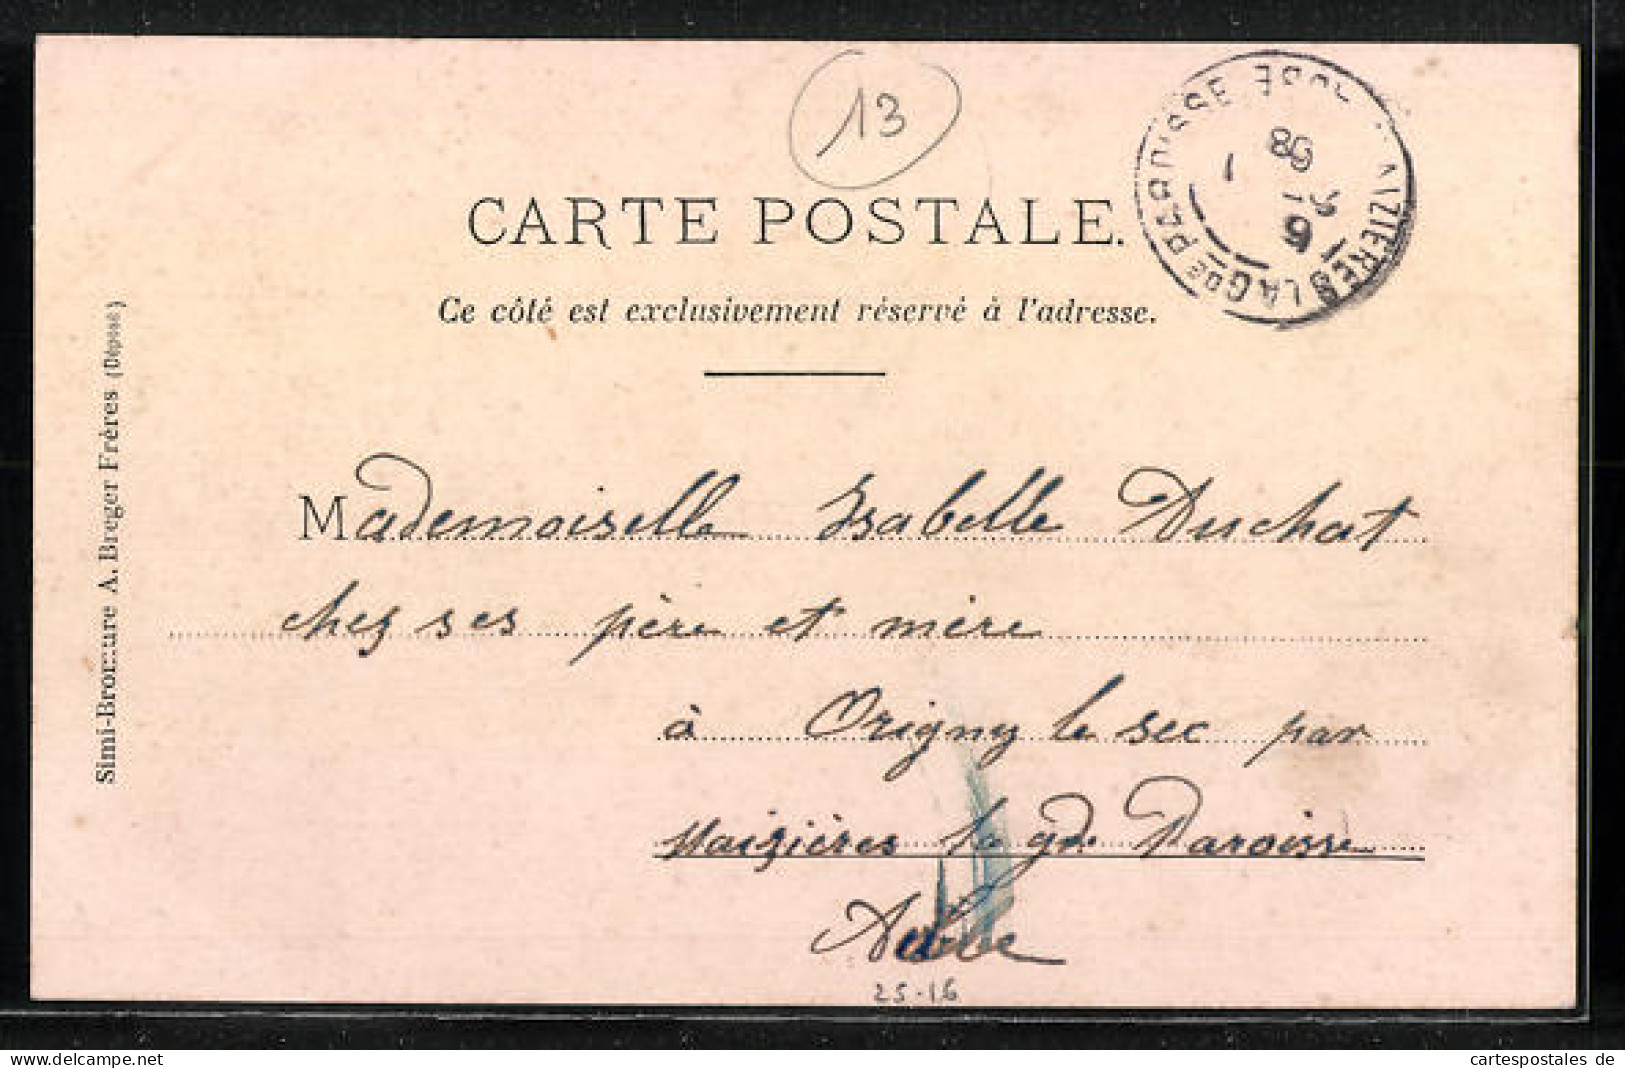 13
CARTE POSTALE.
Ce côté est exclusivement réservé à l'adresse.
Mademoiselle Isabelle Duchat
chez ses père et mère
à Origny le sec par
Maizières la gde Paroisse
Aube
25-16
Simi-Bromure A. Breger Frères (Déposé)
LA GDE PAROISSE
cartespostales de